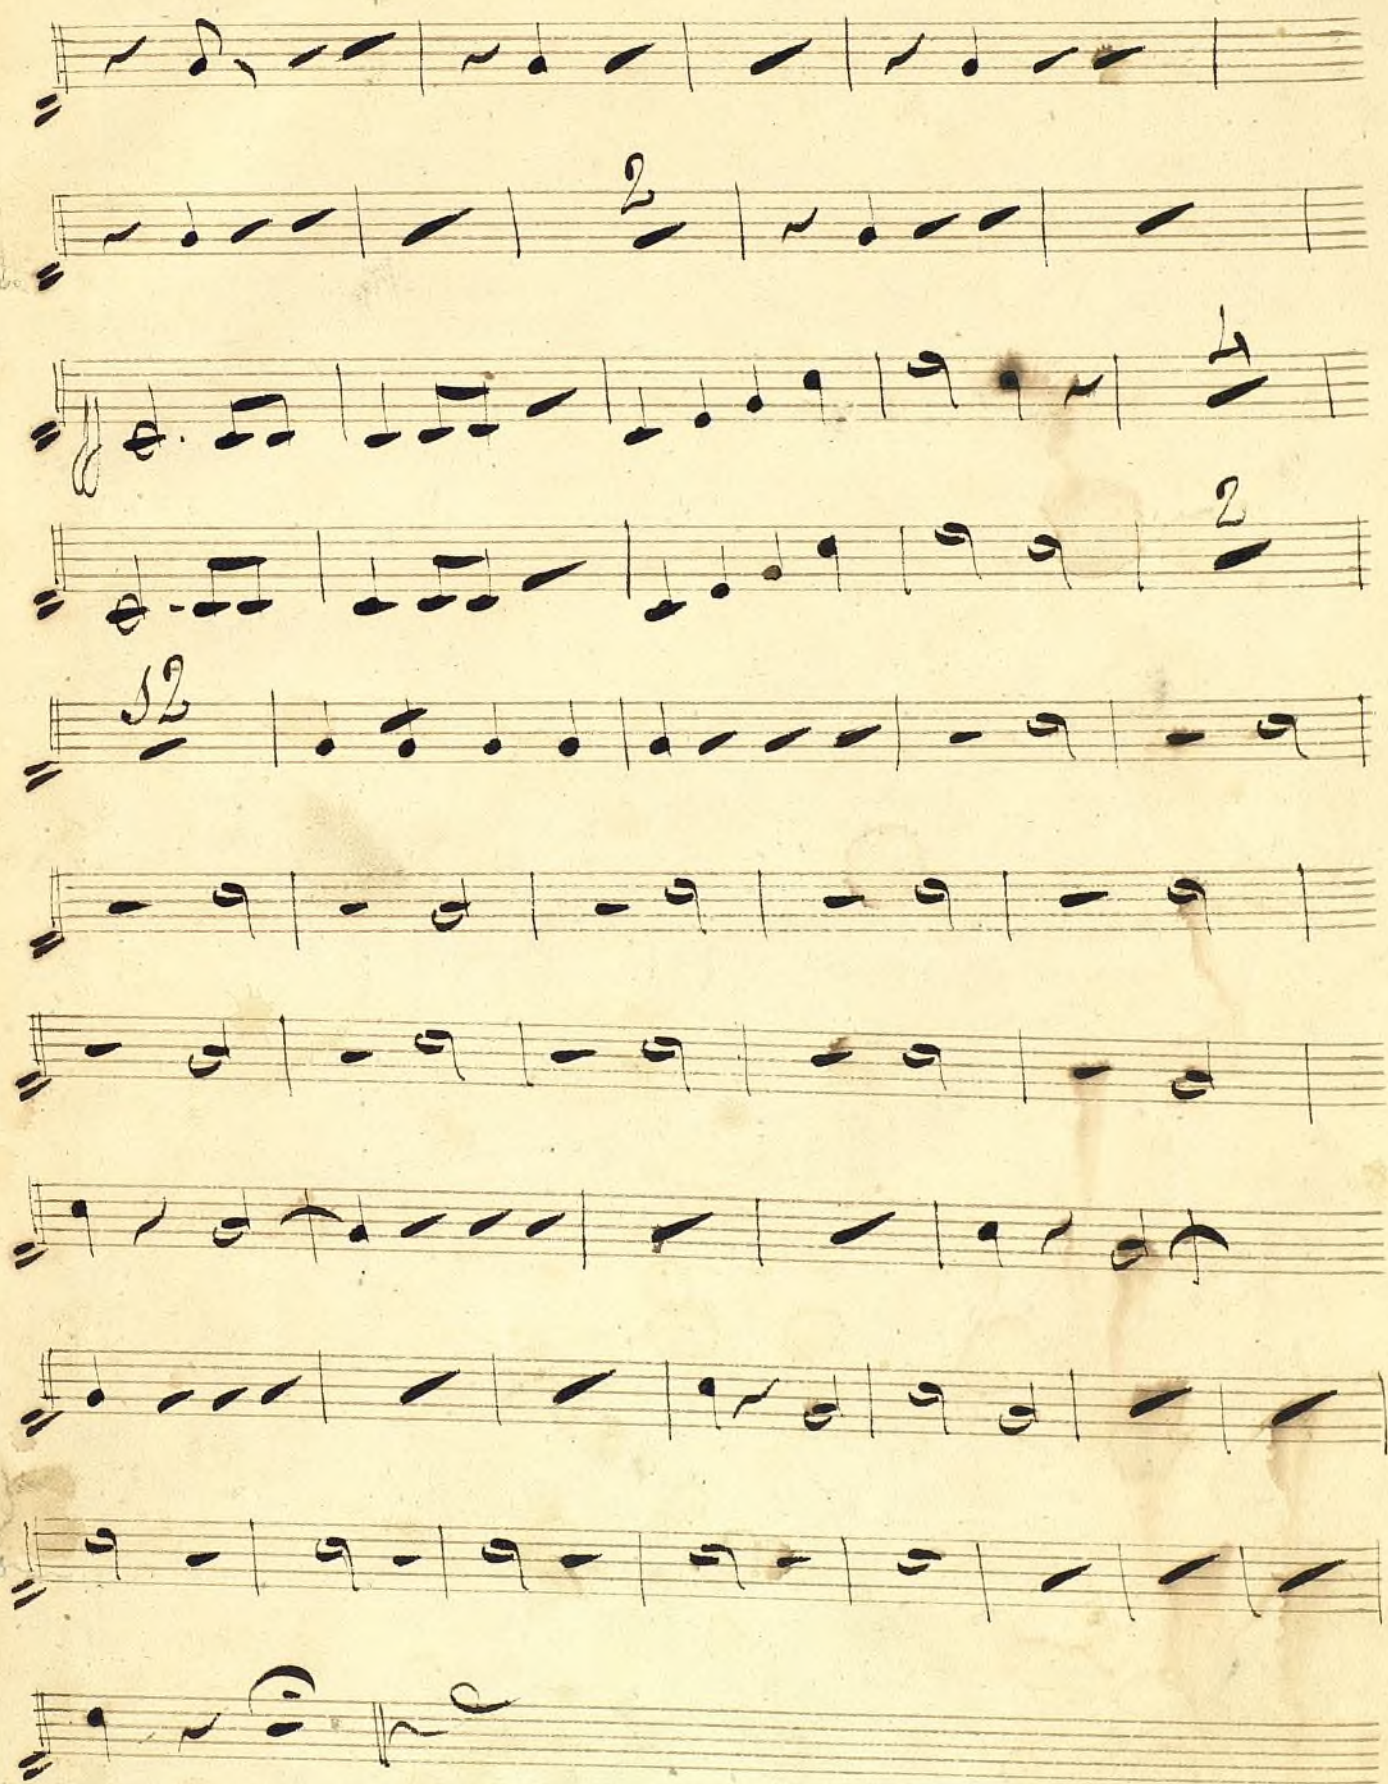 2
4
2
12